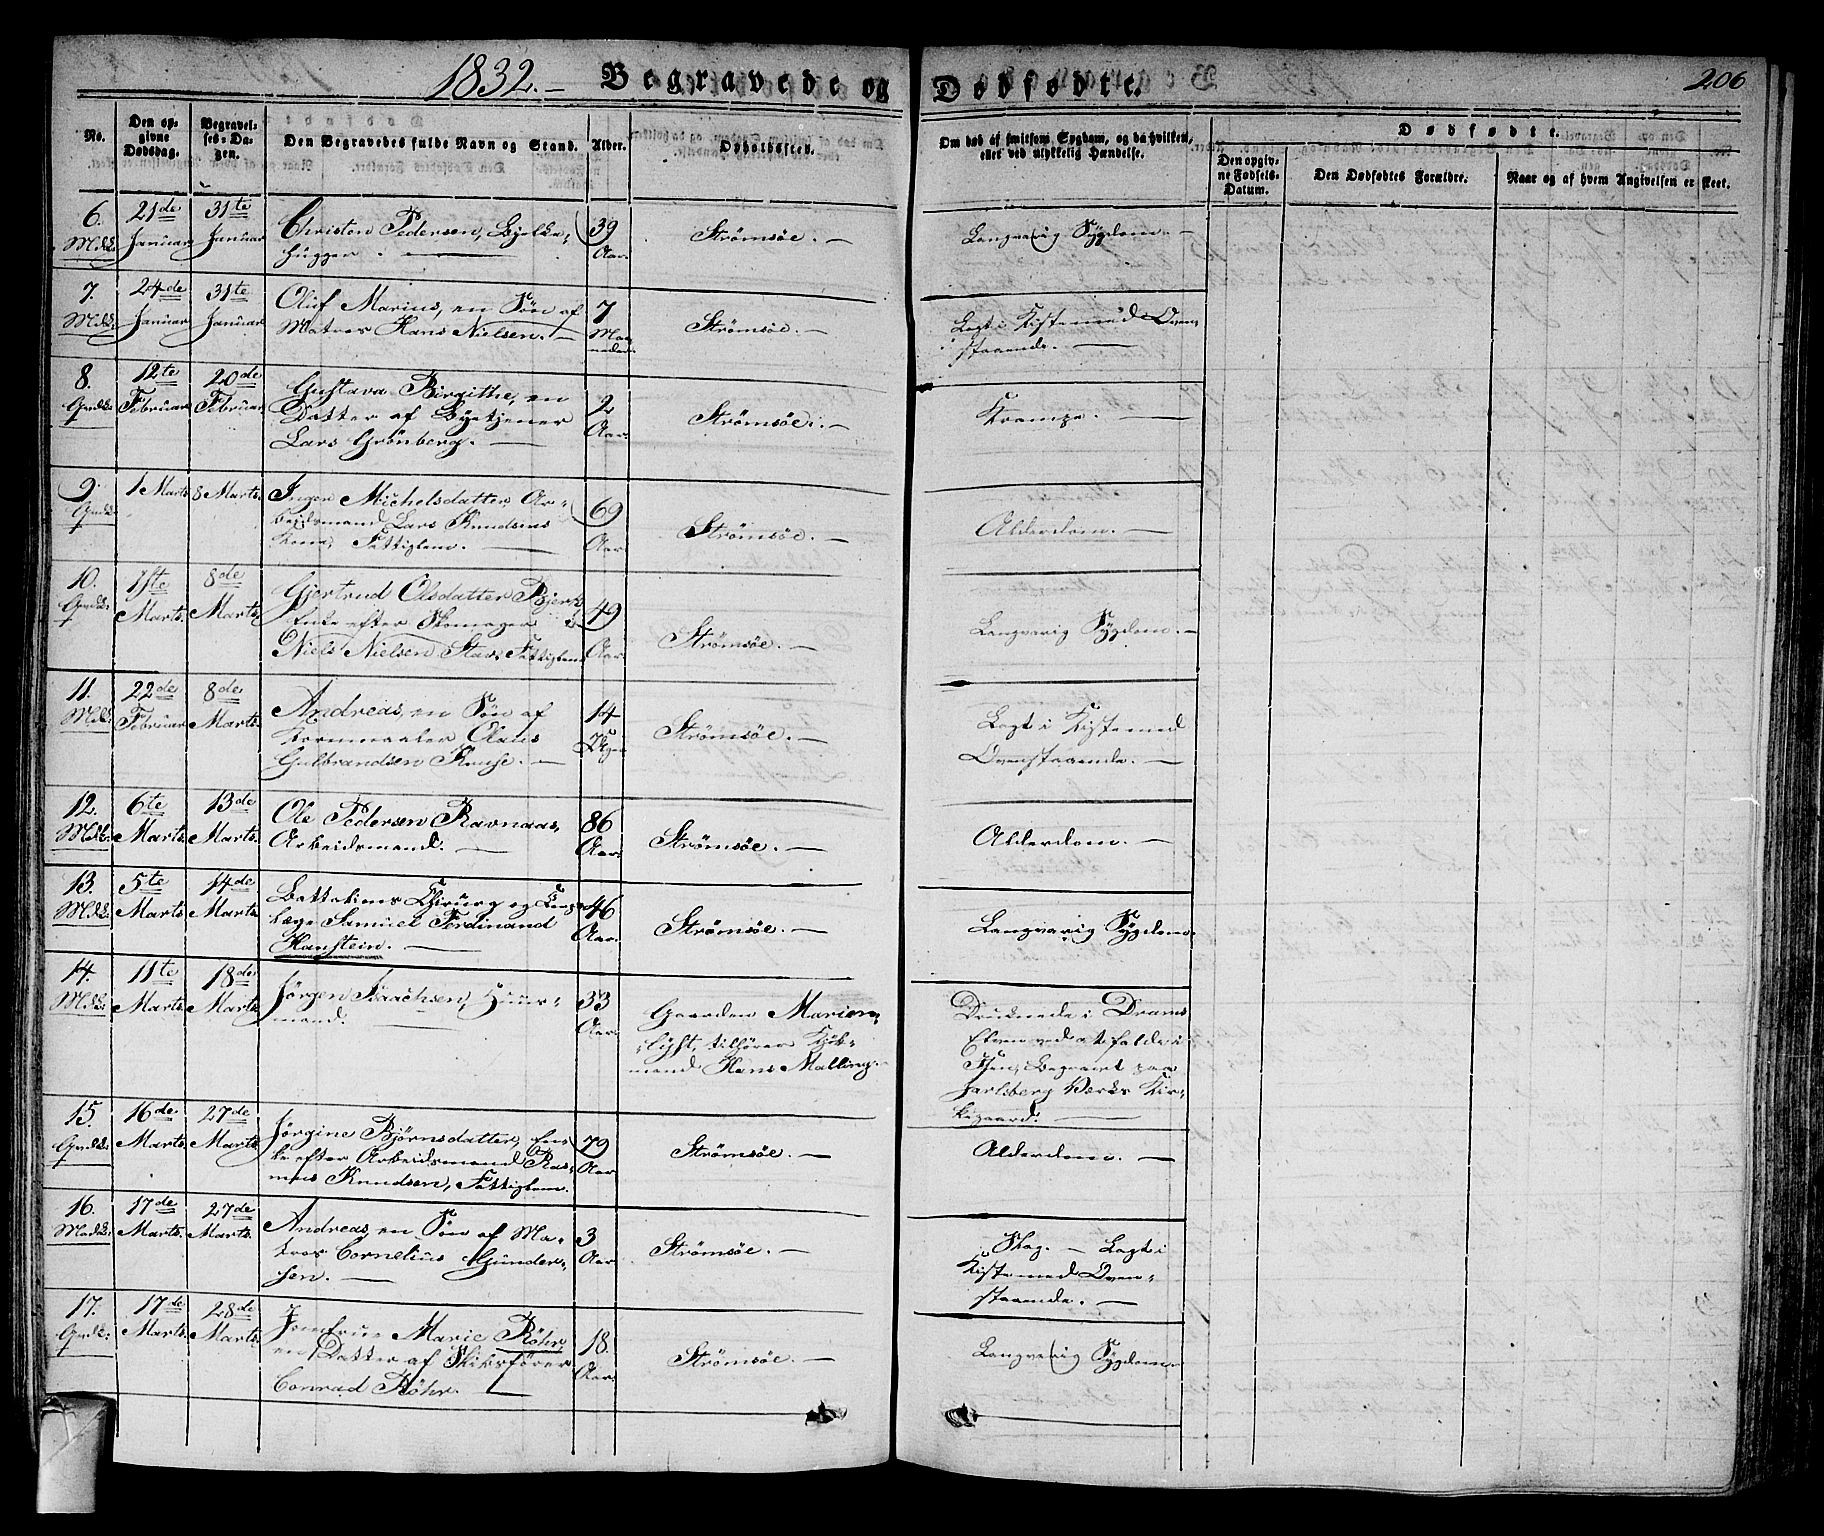 1832.- Begravede og Dødfødte. 206
No.
Den opgivne Dødsdag.
Begravelses-Dagen.
Den Begravedes fulde Navn og Stand.
Alder.
Opholdssted.
Om død af smitsom Sygdom, og da hvilken, eller ved ulykkelig Hændelse.
Dødfødte.
Den opgivne Fødsels-Datum.
Den Dødfødtes Forældre.
Naar og af hvem Angivelsen er skeet.
6. Mdk: 21de Januar 31te Januar
Christen Pedersen, Bjelke-
hugger. —
39 Aar.
Strømsøe. —
Langvarig Sygdom. —
7. Mdk: 24de Januar 31te Januar
Oluf Marius, en Søn af
Matros Hans Nielsen. —
7 Maaneder.
Strømsøe. —
Lagt i Kiste med Oven-
staaende. —
8. Qvdk: 12te Februar 20de Februar
Gustava Birgithe, en
Datter af Byetjener
Lars Grönberg. —
2 Aar.
Strømsøe. —
Krampe. —
9. Qvdk: 1 Marts 8 Marts.
Inger Michelsdatter, Ar-
beidsmand Lars Knudsens
Kone, Fattiglem. —
69 Aar.
Strømsøe. —
Alderdom. —
10. Qvdk: 1ste Marts. 8de Marts.
Gjertrud Olsdatter Bjerk,
Enke efter Skomager
Niels Nielsen Stav, Fattiglem
49 Aar.
Strømsøe. —
Langvarig Sygdom. —
11. Mdk: 22de Februar 8de Marts.
Andreas, en Søn af
Kornmaaler Claus
Gulbrandsen Kruse. —
14 Dage.
Strømsøe. —
Lagt i Kiste med
Ovenstaaende. —
12. Mdk: 6te Marts. 13de Marts.
Ole Pedersen Ravnaas,
Arbeidsmand. —
86 Aar.
Strømsøe. —
Alderdom. —
13. Mdk: 5te Marts. 14de Marts.
Battalions Chirurg og
læge Samuel Ferdinand
Hanstein. —
46 Aar.
Strømsøe. —
Langvarig Sygdom.
14. Mdk: 11te Marts. 18de Marts.
Jørgen Isaachsen, Huus-
mand. —
33 Aar.
Gaarden Marien-
lyst, tilhører Kjøb-
mand Hans Malling. —
Druknede i Drams
Elven ved at falde i
Isen, Begravet paa
Jarlsberg Værks Kir-
kegaard. —
15. Qvdk: 16de Marts. 27de Marts.
Jørgine Bjørnsdatter, En-
ke efter Arbeidsmand Ras-
mus Knudsen, Fattiglem.
79 Aar.
Strømsøe. —
Alderdom. —
16. Mdk: 17de Marts. 27de Marts.
Andreas, en Søn af Ma-
tros Cornelius Gunder-
sen. —
3 Aar.
Strømsøe. —
Slag. — Lagt i
Kiste med Oven-
staaende. —
17. Qvdk: 17de Marts. 28de Marts.
Jomfrue Marie Röhr,
en Datter af Skibsfører
Conrad Röhr. —
18. Aar.
Strømsøe. —
Langvarig Sygdom —